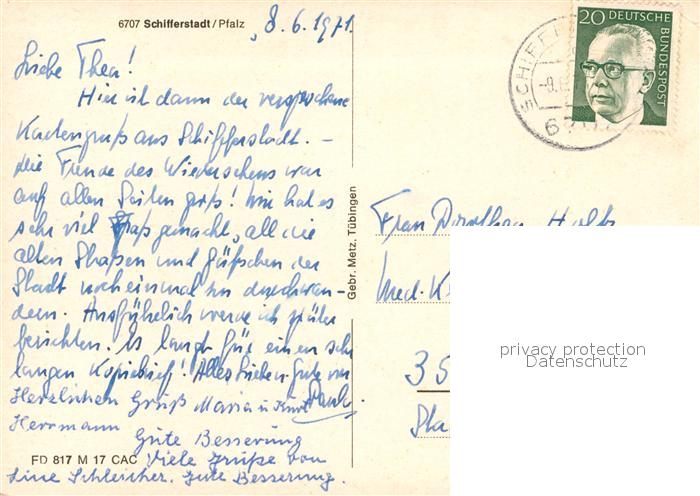 6707 Schifferstadt/Pfalz
8.6.1971.
20 DEUTSCHE BUNDESPOST
SCHIFF
Liebe Thea!
Hier ist dann der versprochene
Kartengruß aus Schifferstadt. –
die Freude des Wiedersehens war
auf allen Seiten groß! Mir hat es
sehr viel Spaß gemacht, all die
alten Straßen und Gäßchen der
Stadt noch einmal zu durchwan-
dern. Ausführlich werde ich später
berichten. Es langt für einen sehr
langen Kopierbrief! Alles Liebe u. Gute von
Paul.
Herzlichen Gruß Maria u. Kurt
Herrmann
Gute Besserung
FD 817 M 17 CAC
Viele Grüße von
Line Schleicher. Gute Besserung.
Gebr. Metz, Tübingen
Frau Dorothea
Med.
35
privacy protection
Datenschutz